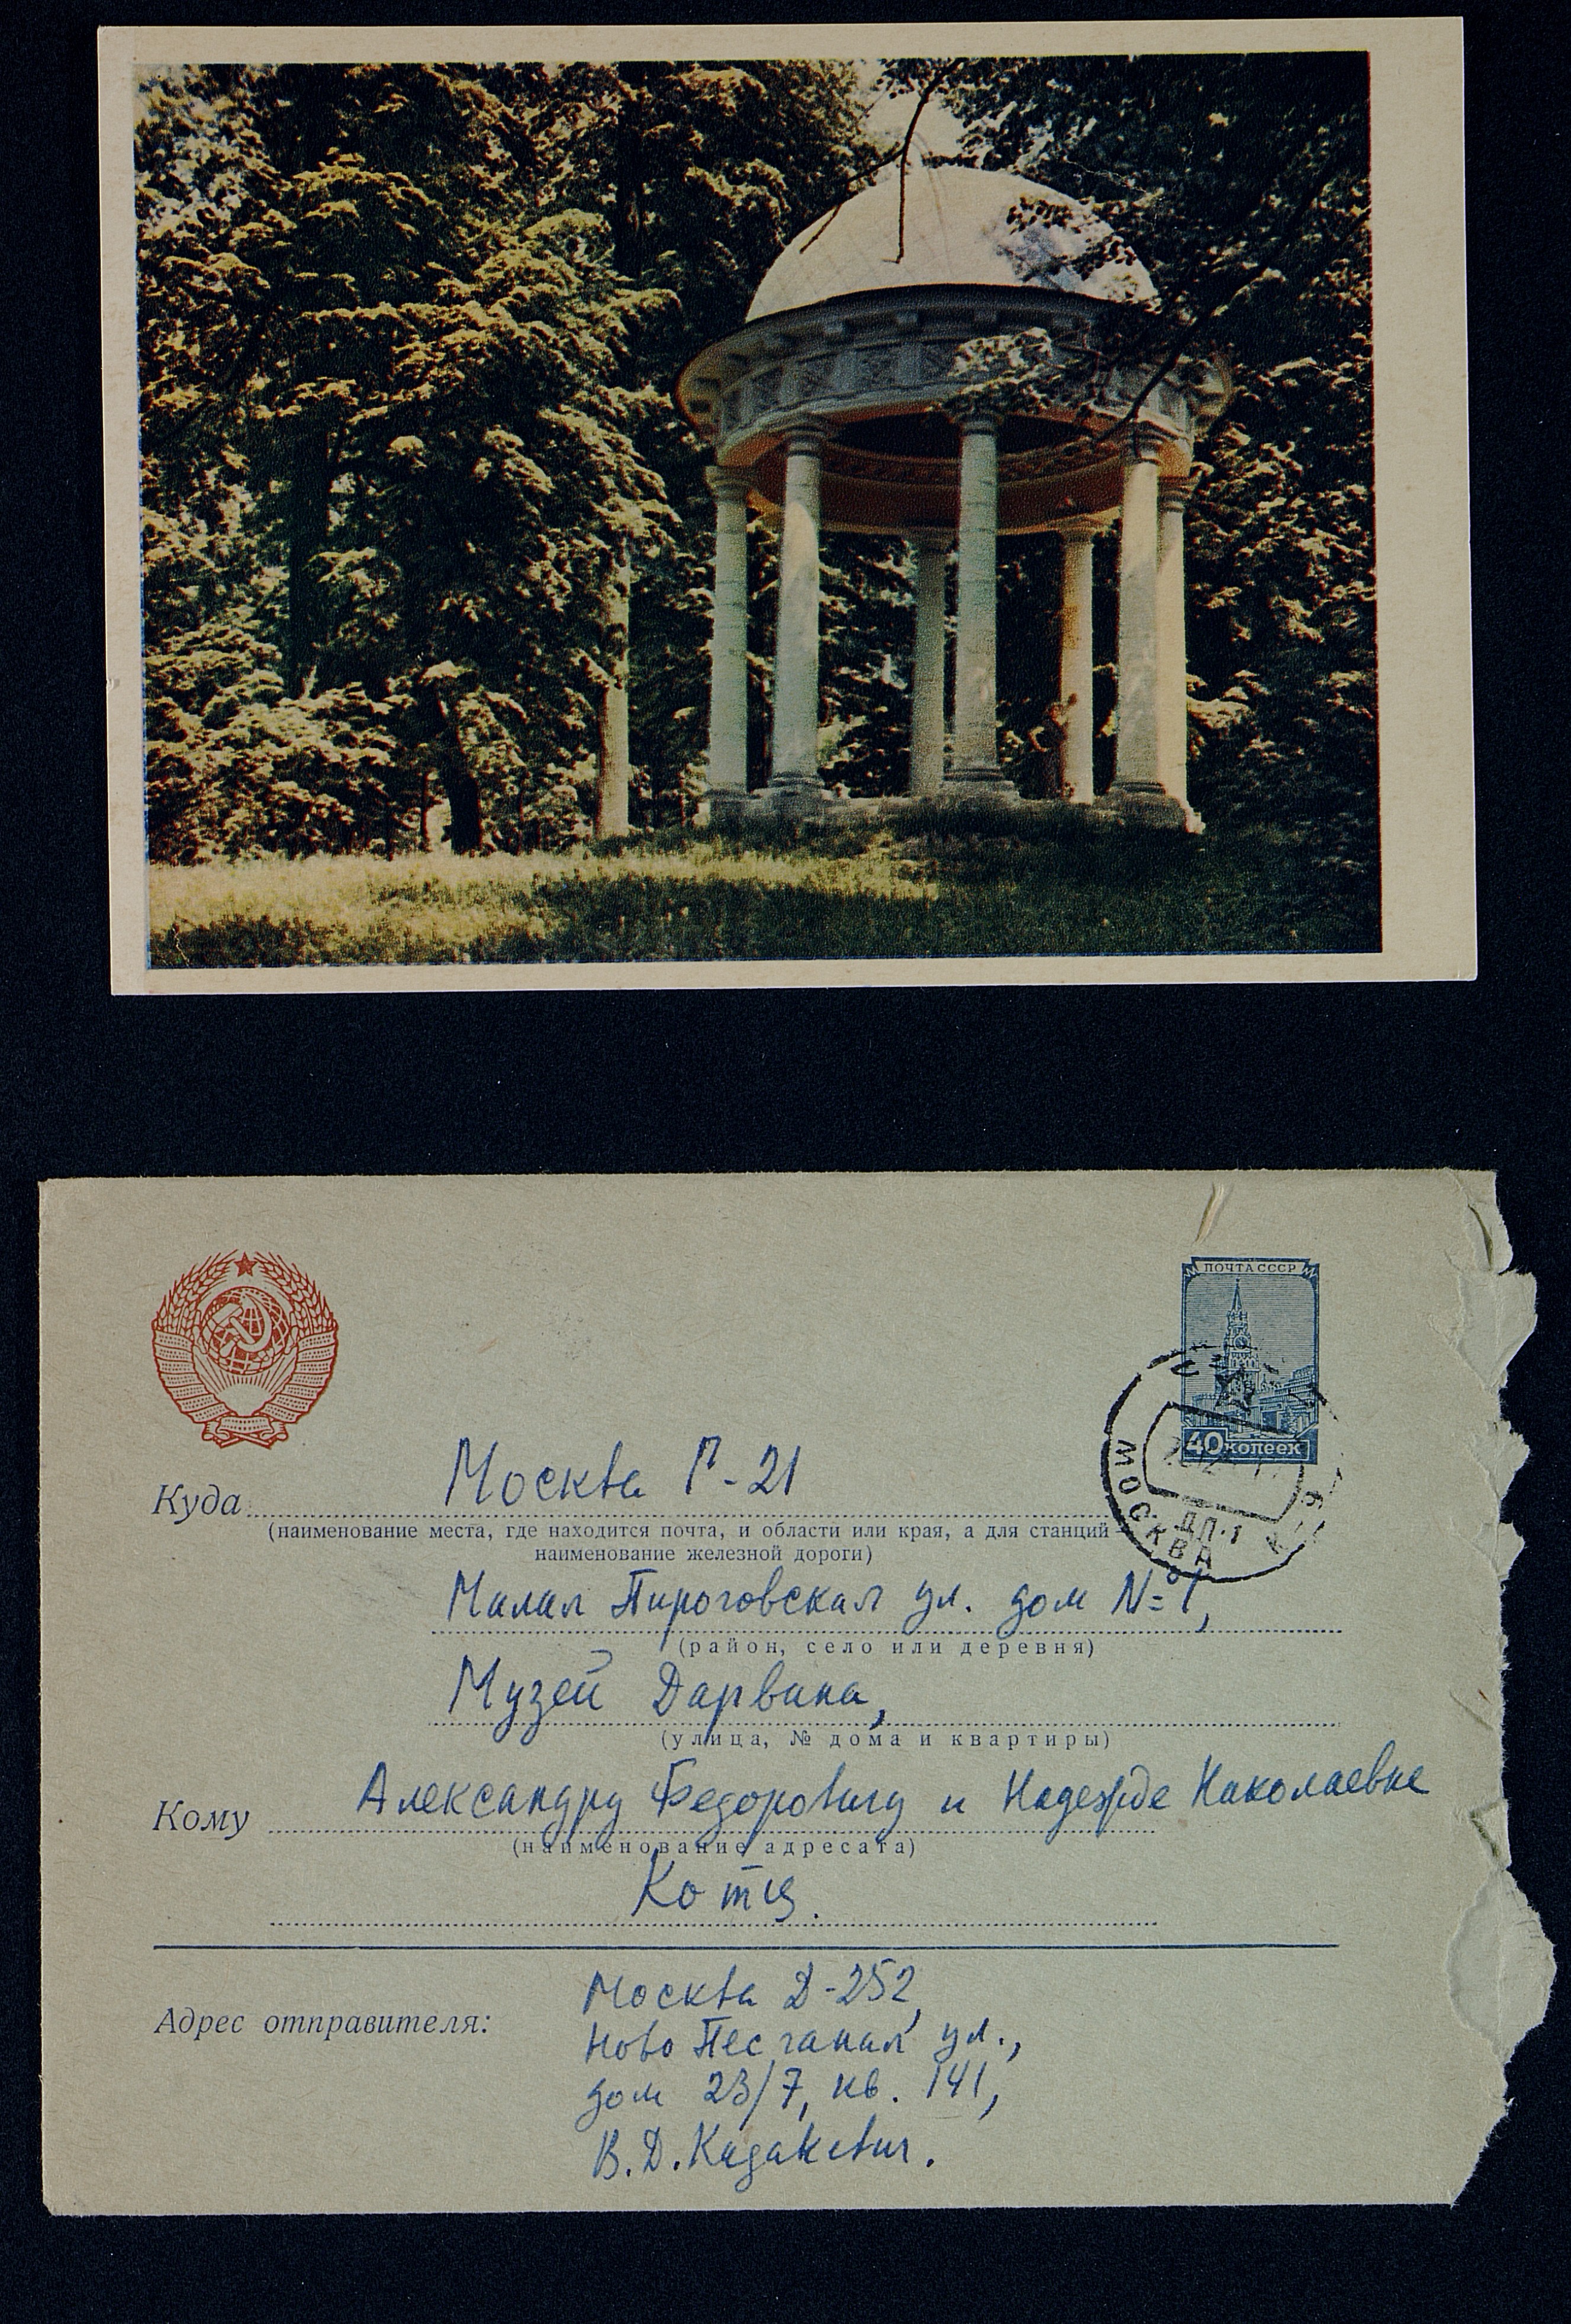 ПОЧТА СССР
40 копеек
МОСКВА
ДП-1
Куда Москва Г-21
(наименование места, где находится почта, и области или края, а для станций —
наименование железной дороги)
Малая Пироговская ул. дом № 1,
(район, село или деревня)
Музей Дарвина,
(улица, № дома и квартиры)
Кому Александру Федоровичу и Надежде Николаевне
(наименование адресата)
Котс.
Адрес отправителя: Москва Д-252,
Ново Песчаная ул.,
дом 23/7, кв. 141,